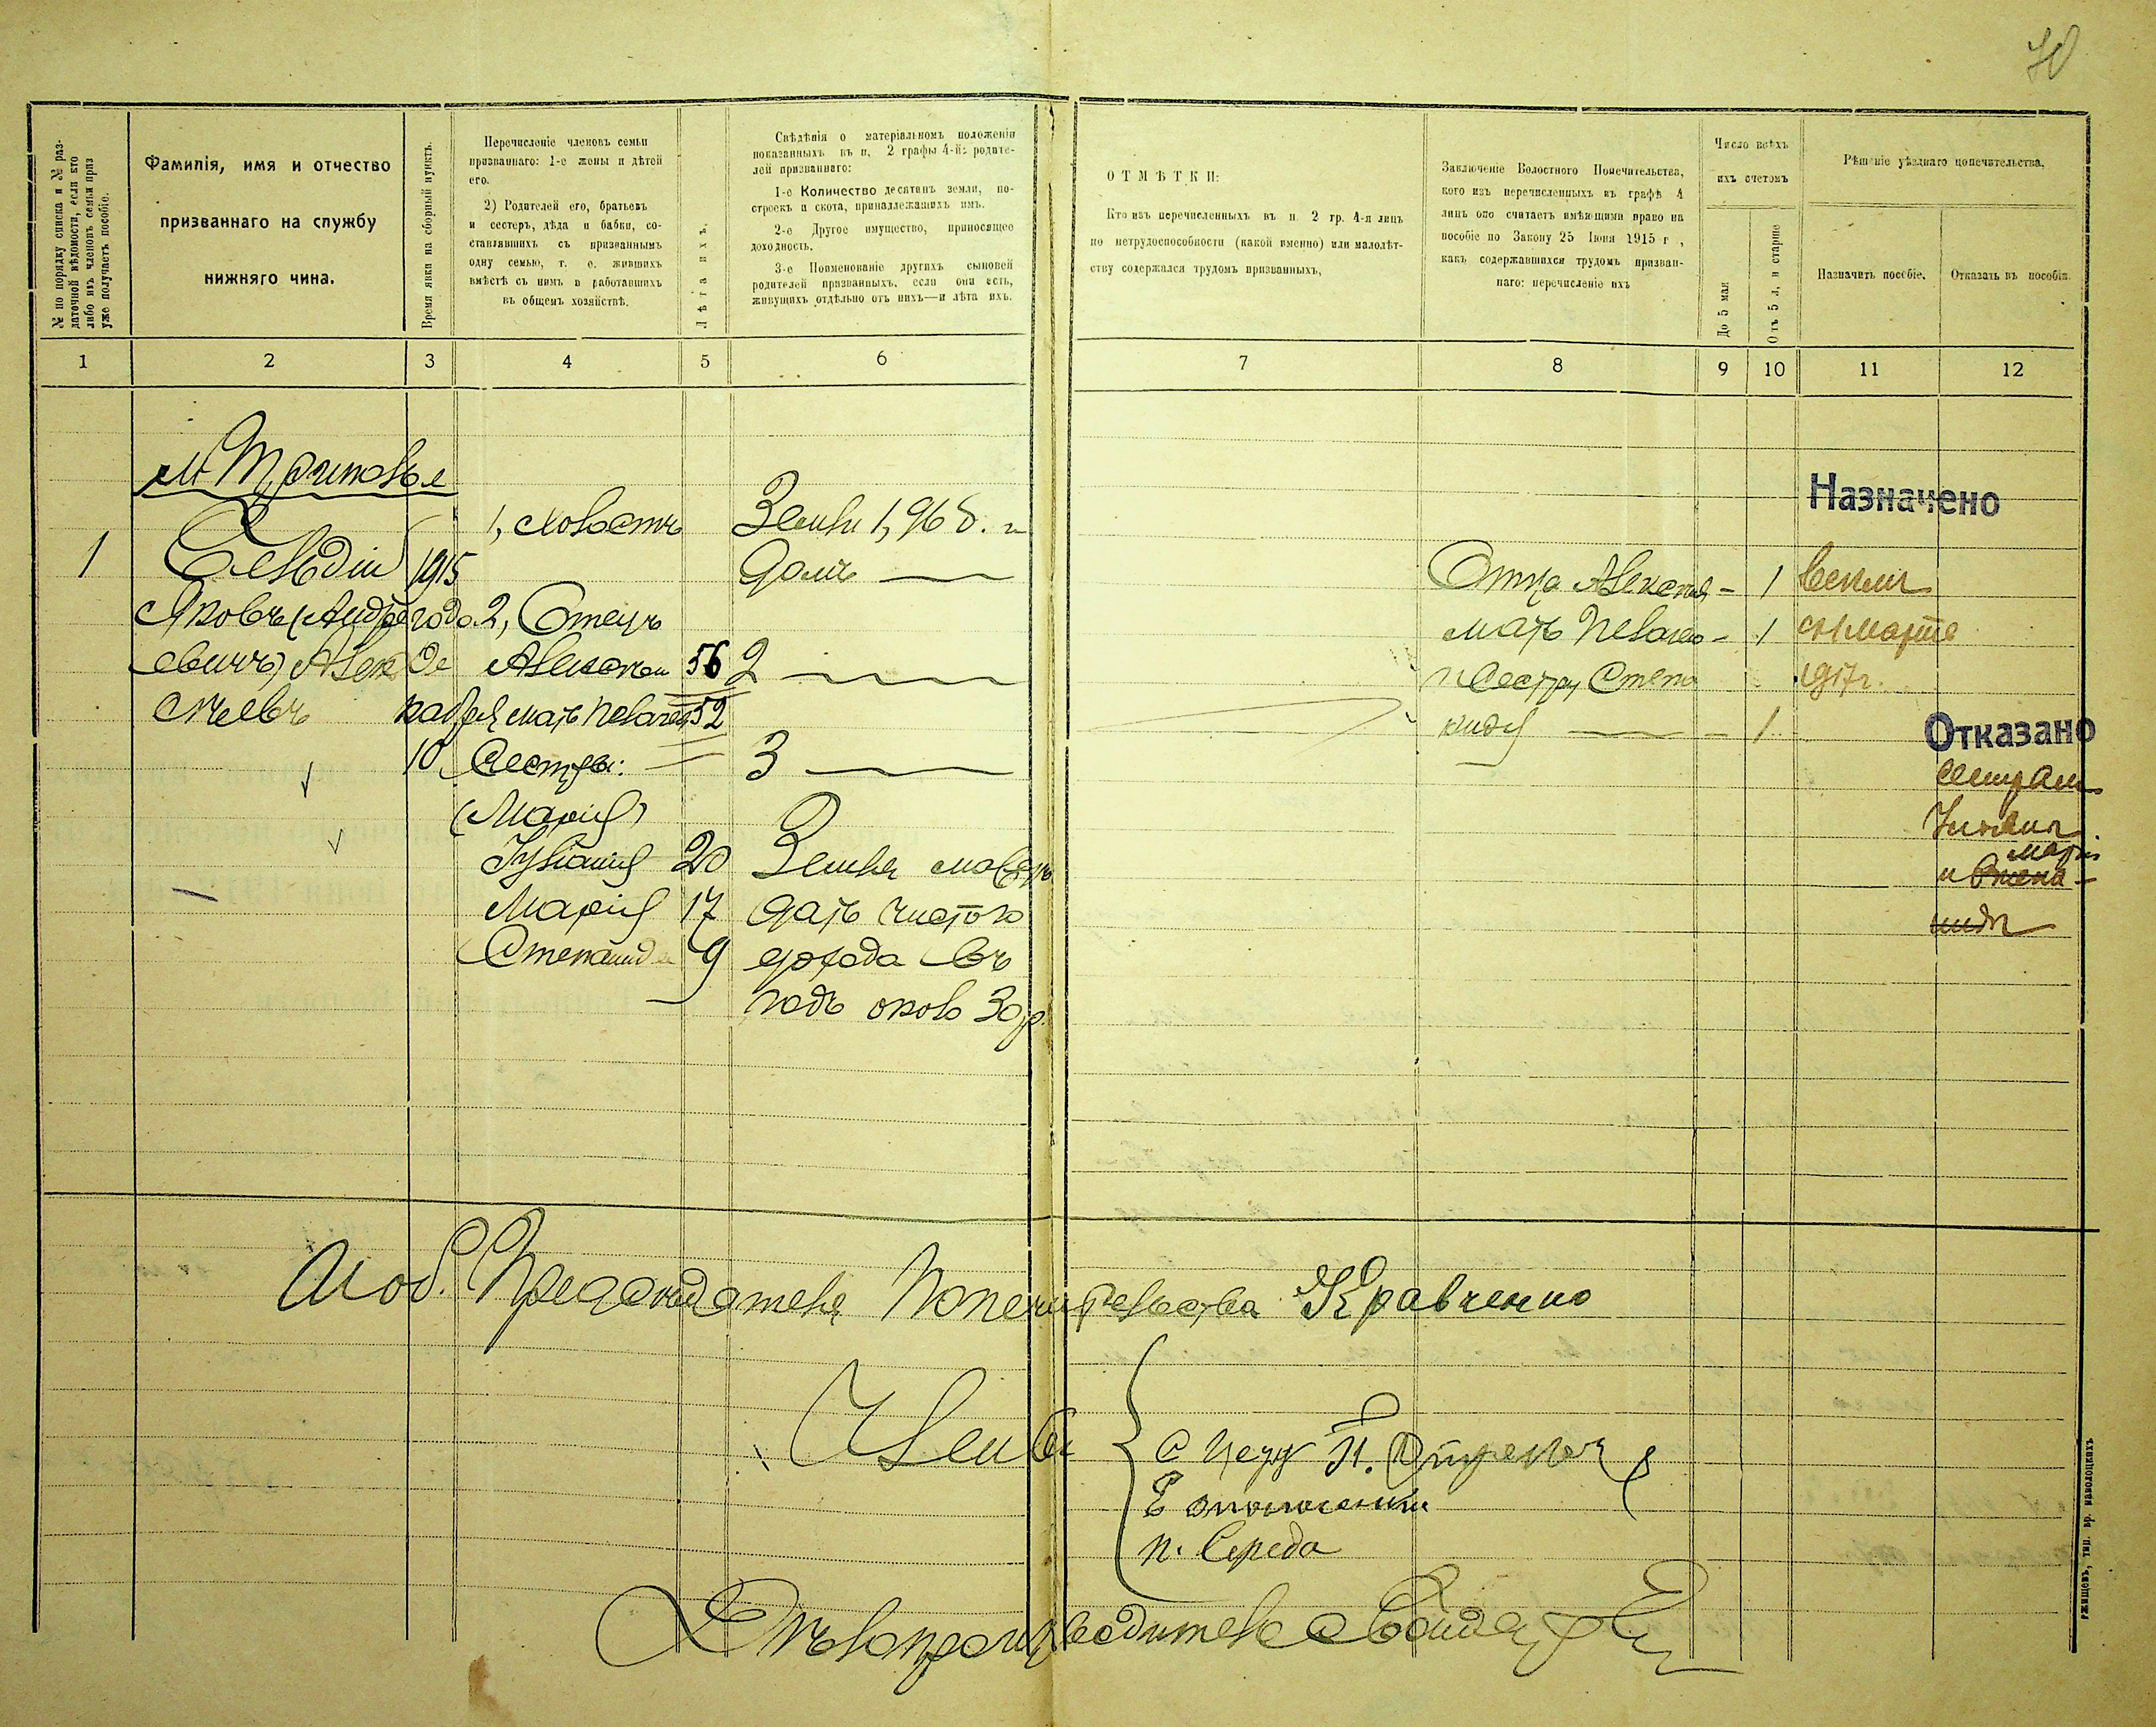 40
№ по порядку списка и № раз-
даточной вѣдомости, если кто
либо изъ членовъ семьи приз
уже получаетъ пособіе.
Фамилія, имя и отчество
призваннаго на службу
нижняго чина.
Время явки на сборный пунктъ.
Перечисленіе членовъ семьи
призваннаго: 1-е жены и дѣтей
его.
2) Родителей его, братьевъ
и сестеръ, дѣда и бабки, со-
ставлявшихъ съ призваннымъ
одну семью, т. е. жившихъ
вмѣстѣ съ нимъ и работавшихъ
въ общемъ хозяйствѣ.
Лѣта ихъ.
Свѣдѣнія о матеріальномъ положеніи
показанныхъ въ п. 2 графы 4-й: родите-
лей призваннаго:
1-е Количество десятинъ земли, по-
строекъ и скота, принадлежащихъ имъ.
2-е Другое имущество, приносящее
доходность.
3-е Поименованіе другихъ сыновей
родителей призванныхъ, если они есть,
живущихъ отдѣльно отъ нихъ—и лѣта ихъ.
ОТМѢТКИ:
Кто изъ перечисленныхъ въ п. 2 гр. 4-я лицъ
по нетрудоспособности (какой именно) или малолѣт-
ству содержался трудомъ призванныхъ,
Заключеніе Волостного Попечительства,
кого изъ перечисленныхъ въ графѣ 4
лицъ оно считаетъ имѣющими право на
пособіе по Закону 25 Іюня 1915 г ,
какъ содержавшихся трудомъ призван-
наго: перечисленіе ихъ
Число всѣхъ
ихъ счетомъ
До 5 мая
Отъ 5 л. и старше
Рѣшеніе уѣзднаго попечительства.
Назначить пособіе.
Отказать въ пособіи.
1 2 3 4 5 6 7 8 9 10 11 12
Назначено
1, холостъ Земли 1,96 д. и
1 1915 домъ
Отца Алексѣя - 1
Яковъ (Андре года 2, Отецъ
мать Пелагею - 1 съ марта
евичъ) Алек Де Алексѣй 56 2
и Сестру Степа 1917г.
сѣевъ кабря мать Пелагея 52
ниду - 1
Отказано
10 Сестры: 3
сестрам
(Марія)
20 Земля можетъ
Мар
и Степа-
Марія 17 дать чистого
нидѣ
Степанида 9 дохода въ
годъ около 30 р.
И об. Предсѣдателя Попечительства Кравченко
Члены
П. Середа
Дѣлопроизводитель
ржищевъ, тип. бр. наволоцкихъ